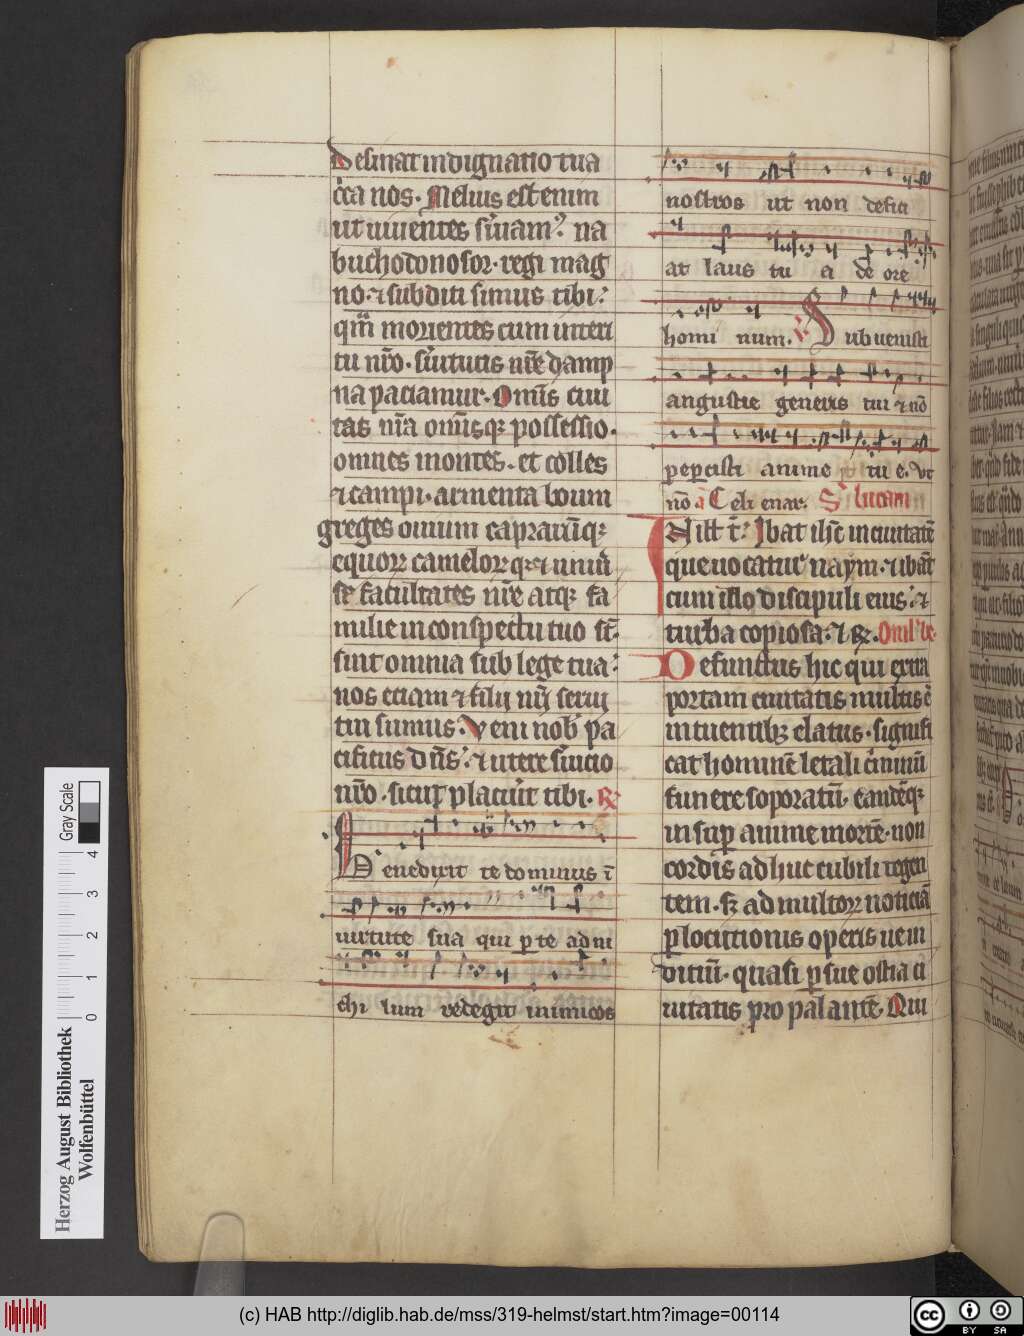 Desinat indignatio tua
c̄ca nos. Melius est enim
ut uiuentes s̄uiam⁹. na
buchodonosor. regi mag
no. ⁊ subditi simus tibi.
q̄m morientes cum interi
tu nr̄o. s̄uitutis nr̄e dāmp
na paciamur. Omīs ciui
tas nr̄a om̄isqꝫ possessio.
omnes montes. et colles
⁊ campi. armenta boum
greges ouium caprarūqꝫ
equoꝝ cameloꝝqꝫ ⁊ uniū
se facultates nr̄e atqꝫ fa
milie in conspectu tuo st̄.
sint omnia sub lege tua.
nos eciam ⁊ filij nr̄i serui
tui sumus. Veni nob̄ pa
cificus dn̄s. ⁊ utere s̄uicio
nr̄o. sicut placuīt tibi. ℟
Benedixit te dominus ī
uirtute sua qui per te ad ni
chi lum redegit inimicos
nostros ut non defici
at laus tu a de ore
homi num. ℣ Subuenisti
angustie generis tui ⁊ nō
pepercisti anime tue. Ut
nō a Celi enar. S. lucam
In illo t̄. Ibat ihc̄ in ciuitatē
que uocatur naym. ⁊ ibāt
cum illo discipuli eius. ⁊
turba copiosa. ⁊ R. Omł be
Defunctus hic qui extra
portam ciuitatis multis ē
intuentibꝫ elatus. signifi
cat hominē letali c̄iminū
funere soporatū. eandēqꝫ
insuꝑ anime mortē. non
cordis adhuc cubili tegen
tem. sꝫ ad multoꝝ noticiā
ꝑ locutionis operis ue in
ditiū. quasi ꝑ sue ostia ci
uitatis pro palantē. Qui
Herzog August Bibliothek
Wolfenbüttel
0 1 2 3 4
Gray Scale
(c) HAB http://diglib.hab.de/mss/319-helmst/start.htm?image=00114
cc BY SA